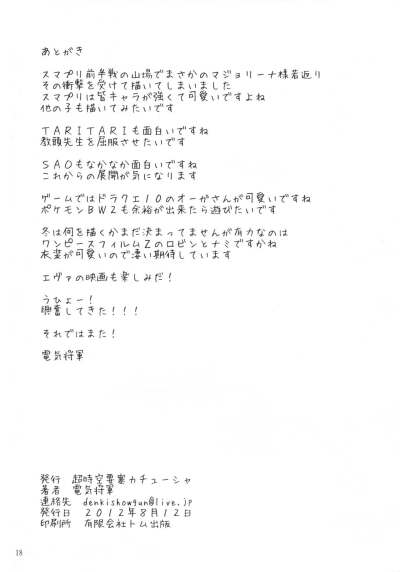 あとがき
スマプリ前半戦の山場でまさかのマジョリーナ様若返り
その衝撃を受けて描いてしまいました
スマプリは皆キャラが強くて可愛いですよね
他の子も描いてみたいです
TARITARIも面白いですね
教頭先生を屈服させたいです
SAOもなかなか面白いですね
これからの展開が気になります
ゲームではドラクエ10のオーガさんが可愛いですね
ポケモンBW2も余裕が出来たら遊びたいです
冬は何を描くかまだ決まってませんが有力なのは
ワンピースフィルムZのロビンとナミですかね
衣装が可愛いので凄い期待しています
エヴァの映画も楽しみだ！
うひょー！
興奮してきた！！！
それではまた！
電気将軍
発行　超時空要塞カチューシャ
著者　電気将軍
連絡先　denkishowgun@live.jp
発行日　2012年8月12日
印刷所　有限会社トム出版
18